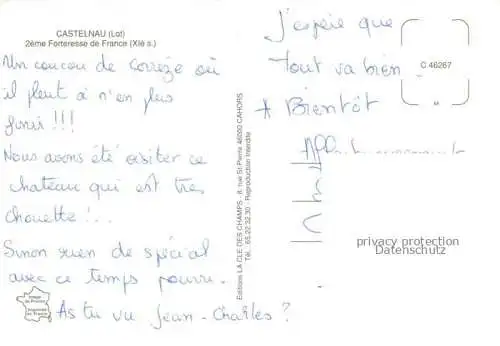 CASTELNAU (Lot)
2ème Forteresse de France (XIè s.)
Un coucou de Corrèze où
il pleut à n'en plus
finir !!!
Nous avons été visiter ce
chateau qui est très
chouette !..
Sinon rien de spécial
avec ce temps pourri.
As tu vu Jean-Charles ?
Image de France
Imprimée en France
Editions LA CLE DES CHAMPS - 8, rue St Pierre 46000 CAHORS
Tél.: 65.22.32.30 - Reproduction Interdite
J'espère que
tout va bien
A Bientôt
C 46267
privacy protection
Datenschutz